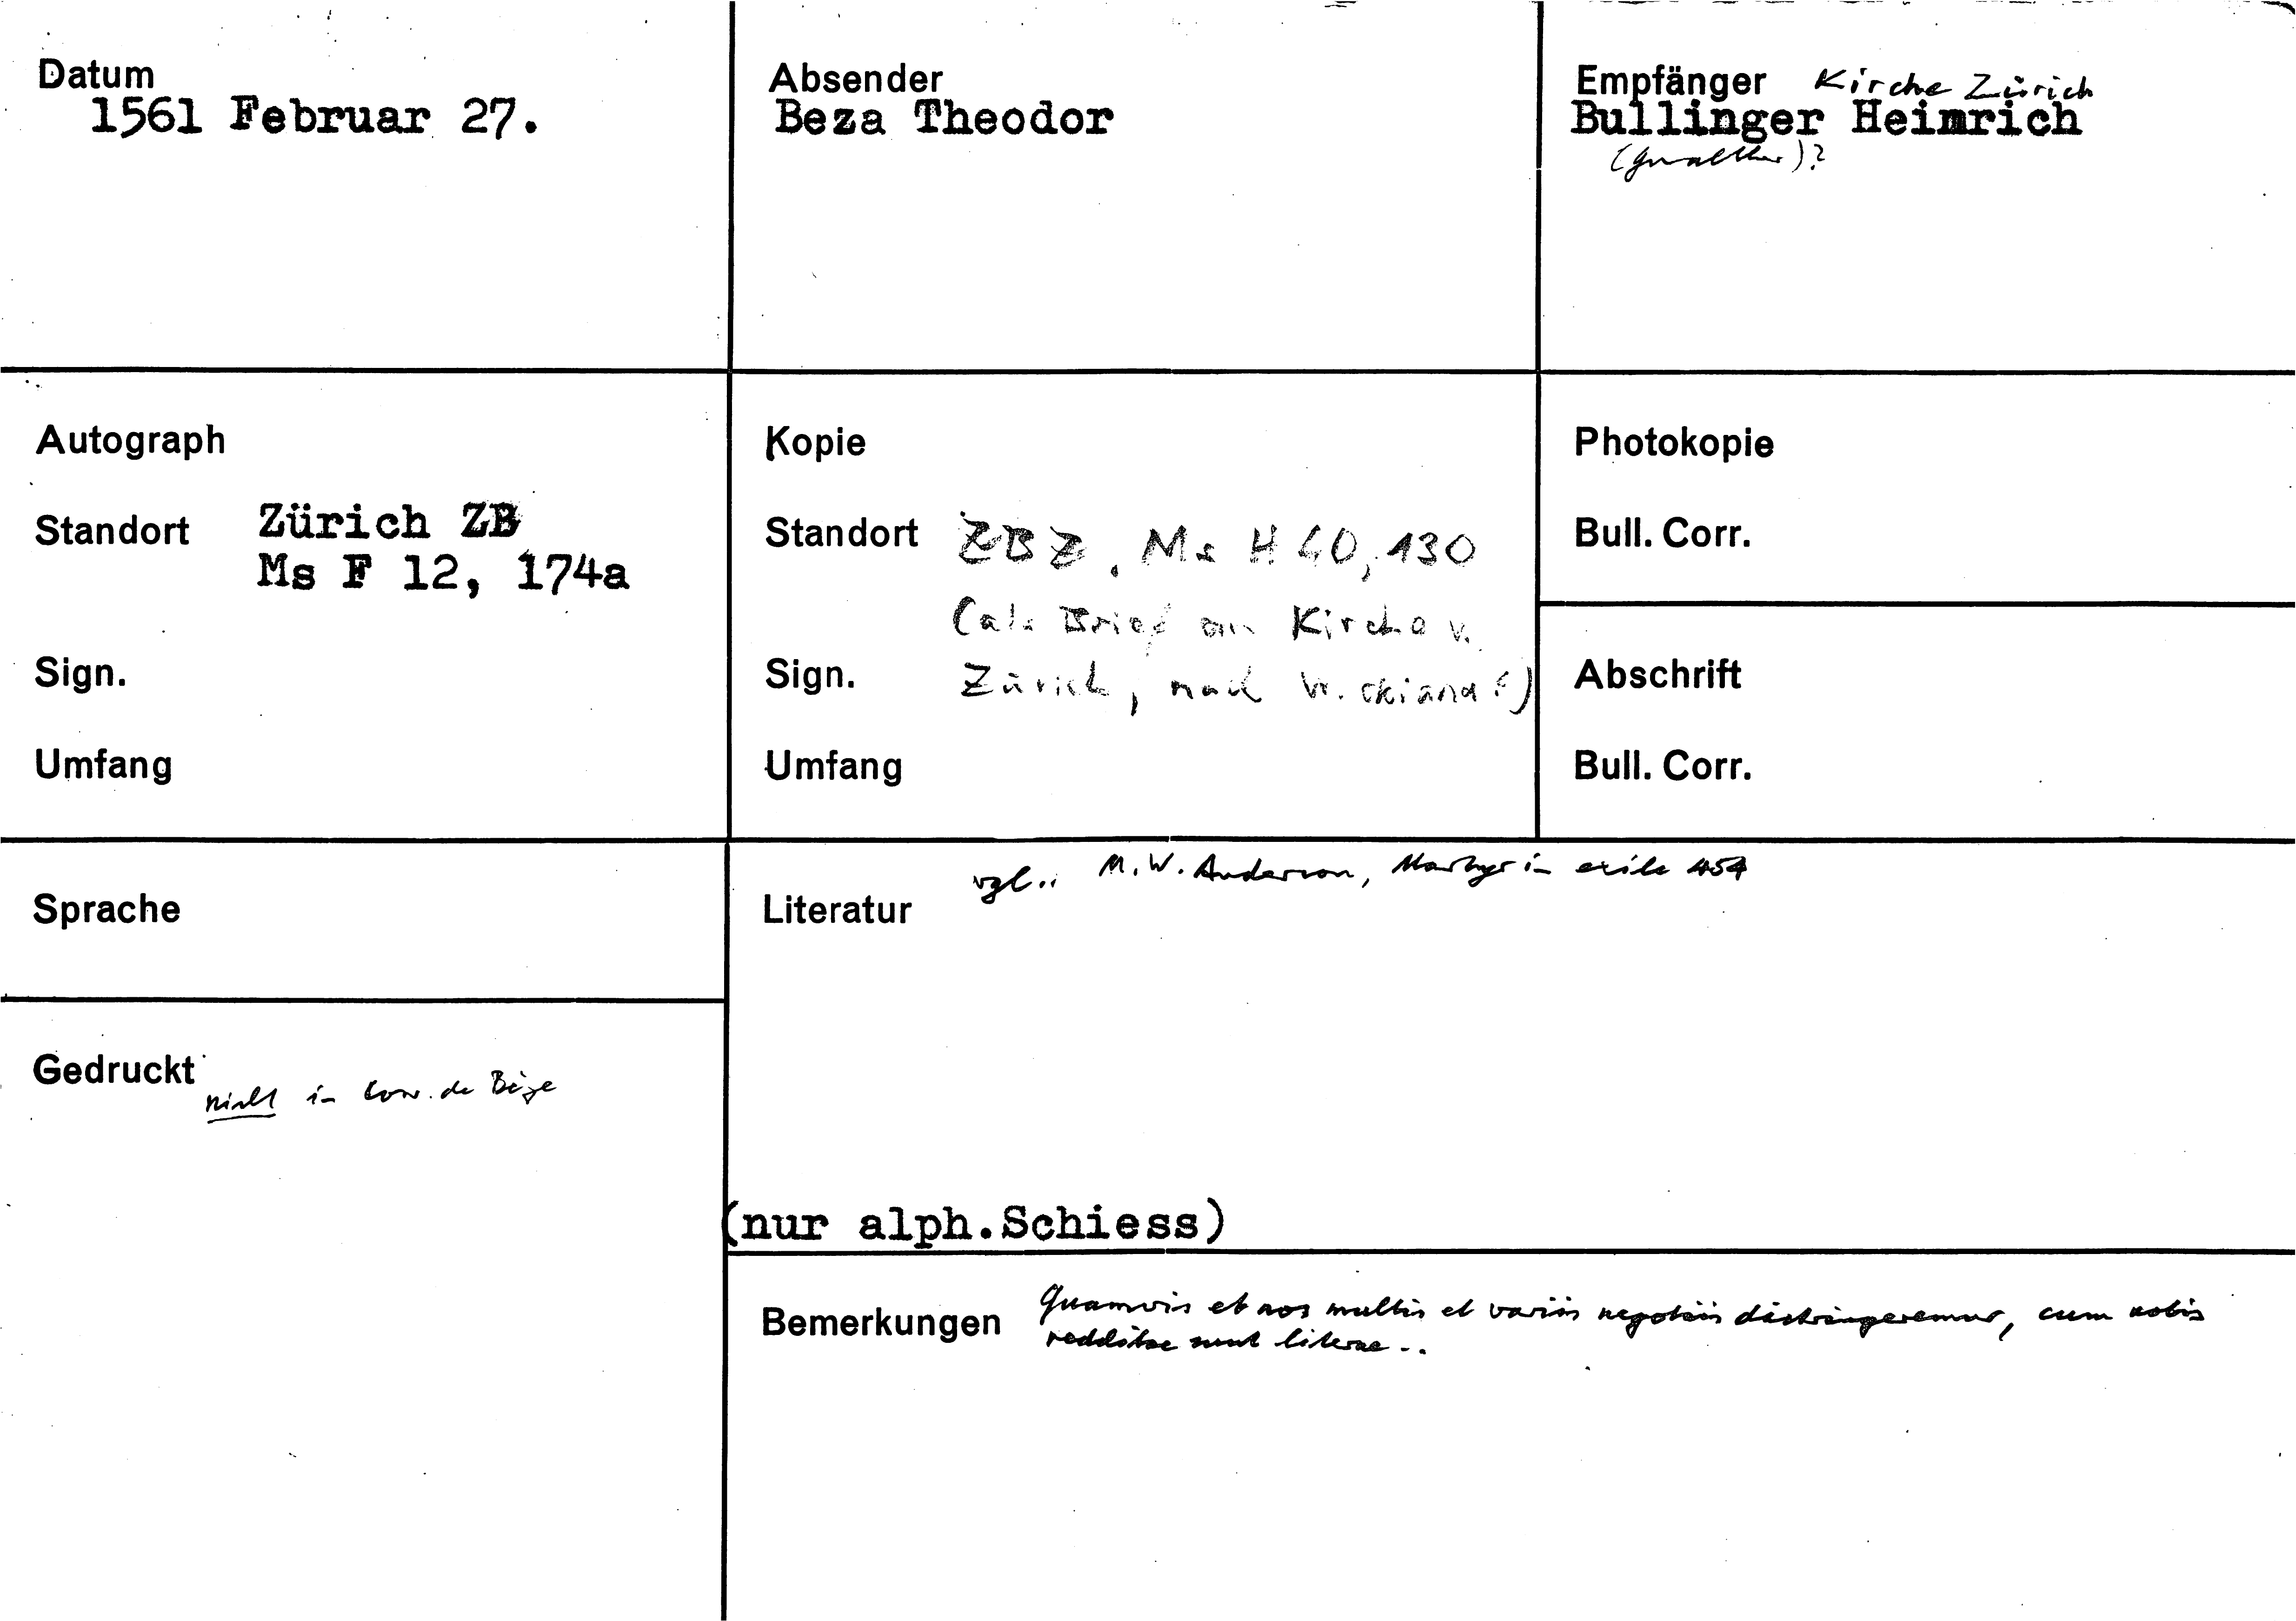 Datum
1561 Februar 27.
Absender
Beza Theodor
Empfänger Kirche Zürich
Bullinger Heinrich
(Gwalther)?
Autograph
Standort Zürich ZB
Ms F 12, 174a
Sign.
Umfang
Kopie
Standort ZBZ, Ms H 40, 130
(als Brief an Kirche v.
Sign. Zürich, nach Wickiana?)
Umfang
Photokopie
Bull. Corr.
Abschrift
Bull. Corr.
Sprache
Gedruckt
nicht in Corr. de Bèze
vgl.: M. W. Anderson, Martyr in exile 454
Literatur
(nur alph.Schiess)
Bemerkungen Quamvis et nos multis et variis negotiis distringeremur, cum nobis
redditae sunt literae ..